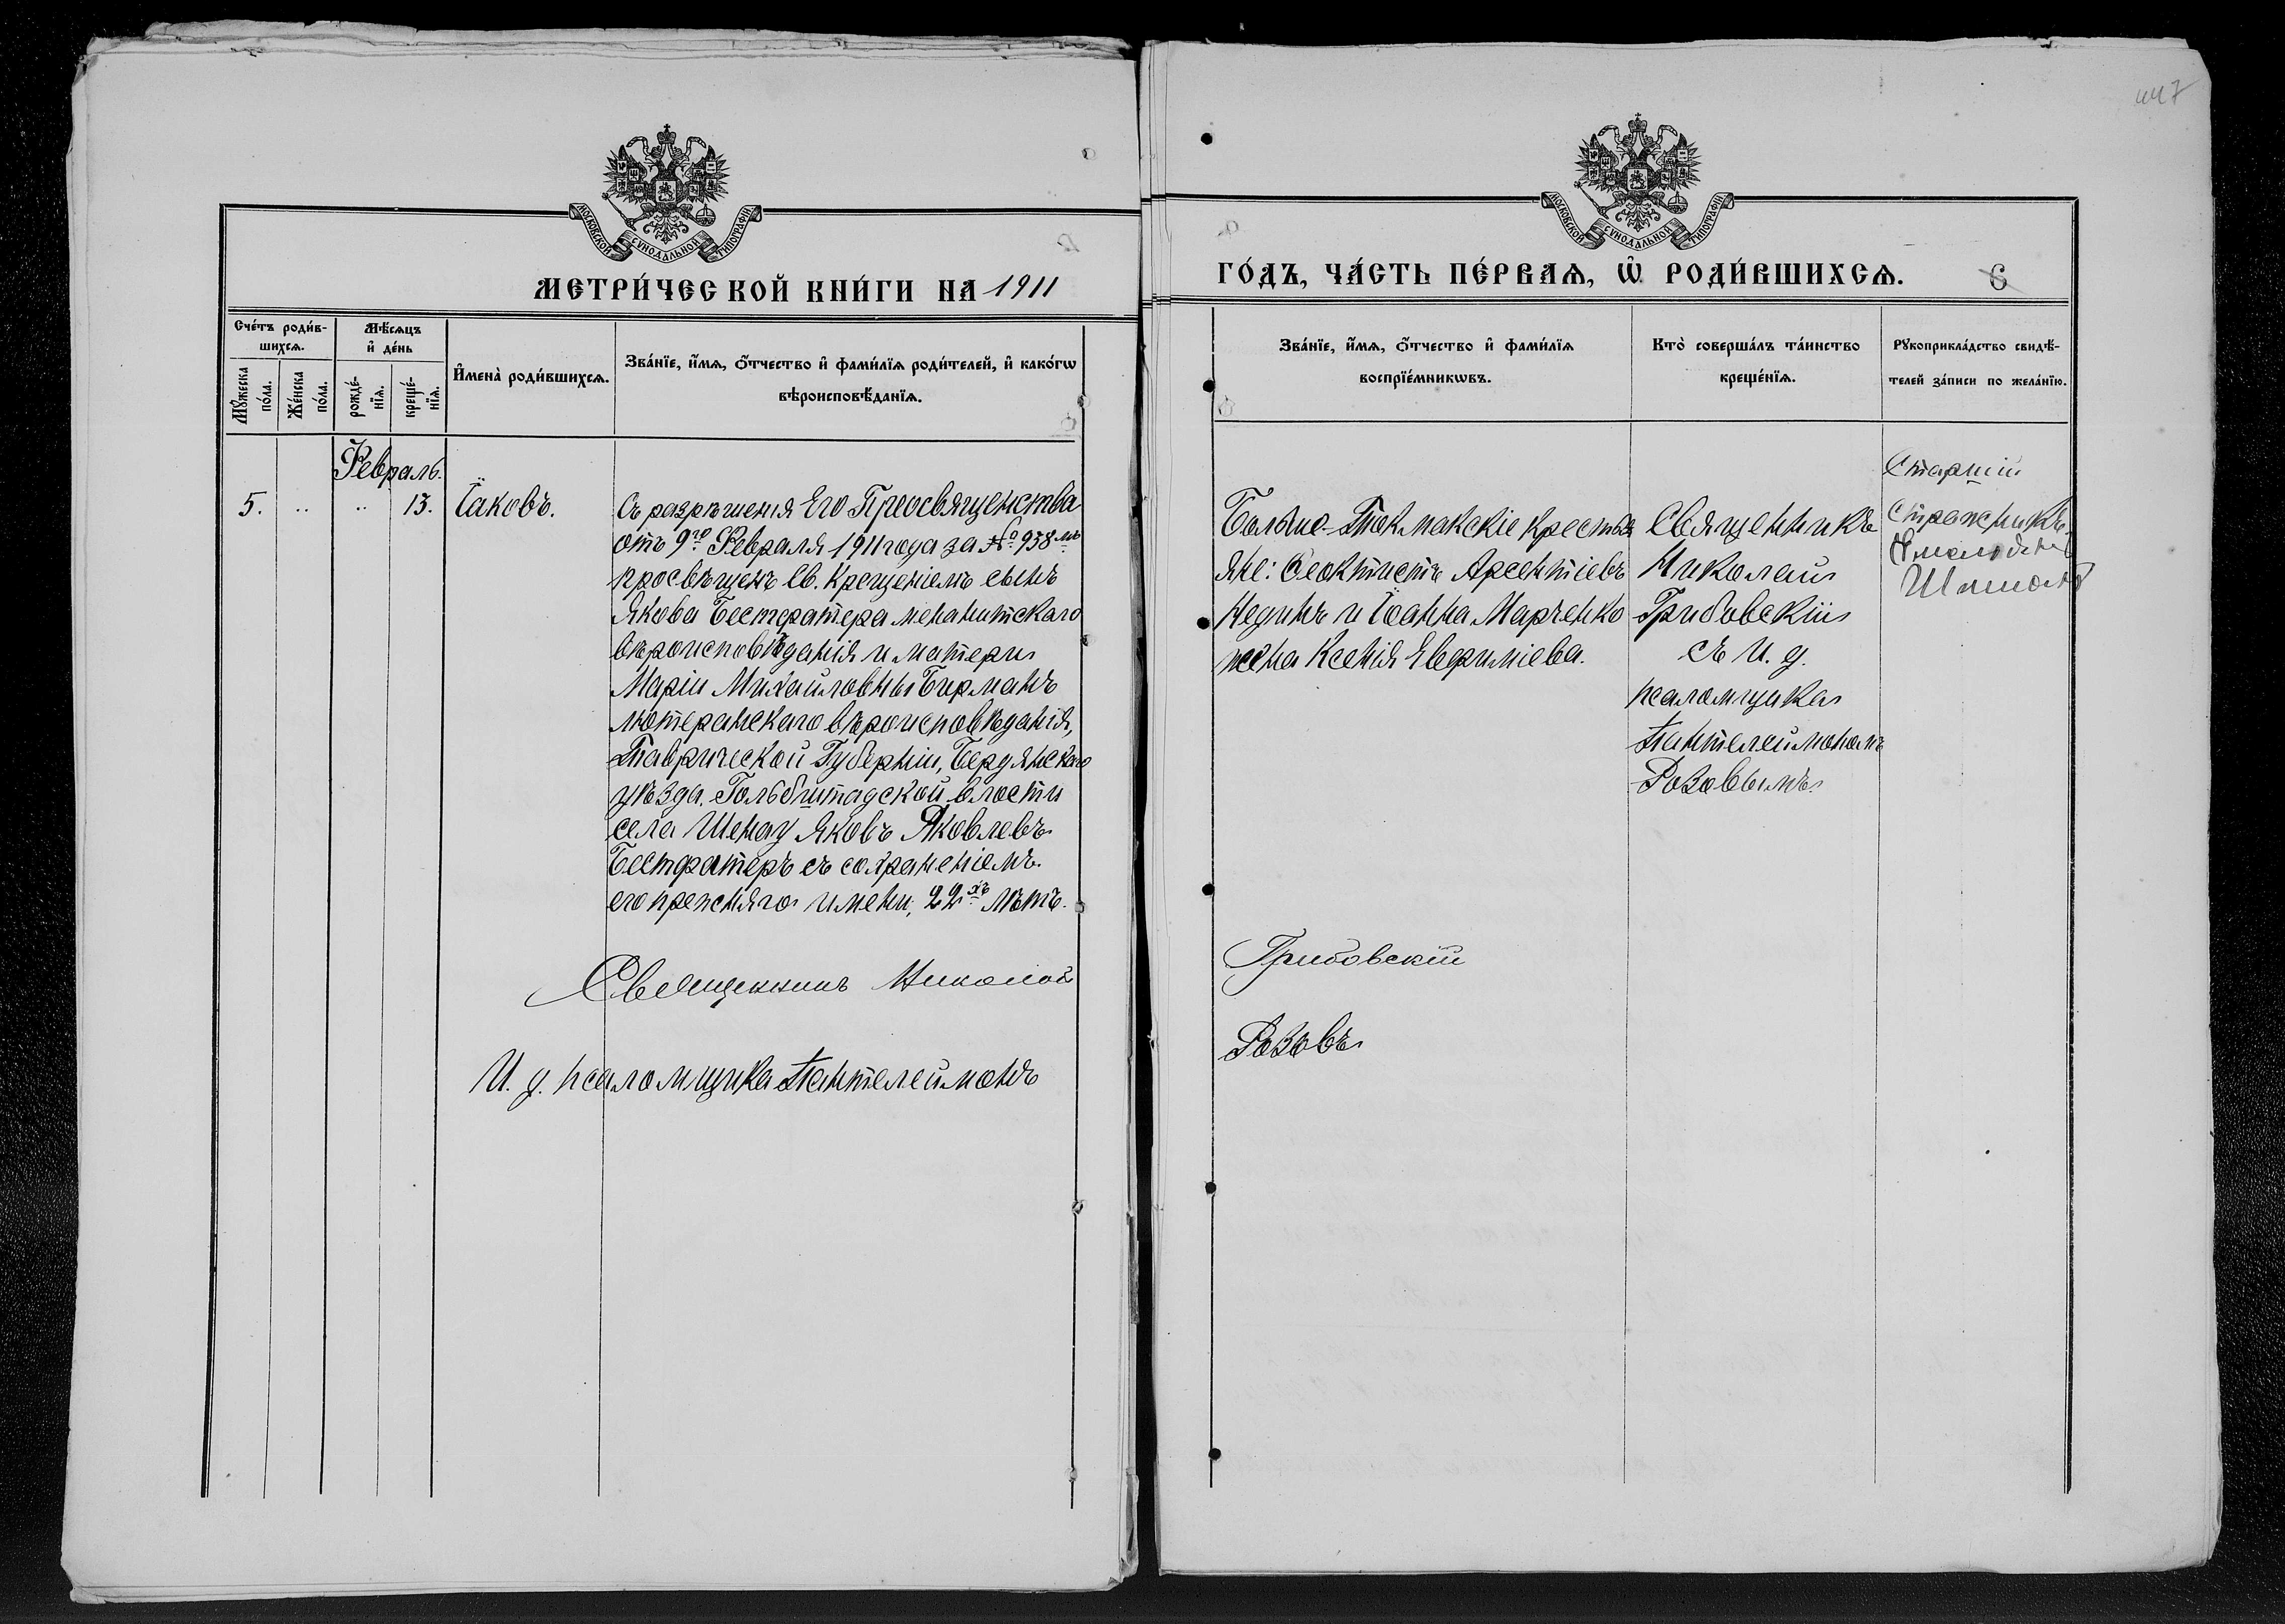 447
МОСКОВСКОЙ СУНОДАЛЬНОЙ ТИПОГРАФІИ
МЕТРИ́ЧЕСКОЙ КНИ́ГИ НА 1911
Сче́тъ роди́в-
шихсѧ.
Мѣ́сѧцъ
и҆ де́нь
Мꙋ́жеска
по́ла.
Же́нска
по́ла.
рожде́-
нїѧ.
креще́-
нїѧ.
И҆мена̀ роди́вшихсѧ.
Зва́нїе, и҆́мѧ, ѻ҆́тчество и҆ фами́лїѧ роди́телей, и҆ како́гѡ
вѣроисповѣ́данїѧ.
Февраль.
5. .. .. 13. Іаковъ.
Съ разрѣшенія Его Преосвященства
отъ 9го Февраля 1911 года за № 938мъ
просвѣщенъ Св. Крещеніемъ сынъ
Якова Бестфатера менанитскаго
вѣроисповѣданія и матери
Маріи Михайловны Бирманъ
лютеранскаго вѣроисповѣданія,
Таврической Губерніи, Бердянскаго
уѣзда, Гольбштадской влости
села Шенау Яковъ Яковлевъ
Бестфатеръ съ сохраненіемъ
его прежняго имени, 22хъ лѣтъ.
Священникъ Николай
И. д. псаломщика Пантелеимонъ
МОСКОВСКОЙ СУНОДАЛЬНОЙ ТИПОГРАФІИ
ГО́ДЪ, ЧА́СТЬ ПЕ́РВАѦ, Ѡ҆ РОДИ́ВШИХСѦ.
Зва́нїе, и҆́мѧ, ѻ҆́тчество и҆ фами́лїѧ
воспрїе́мникѡвъ.
Кто̀ соверша́лъ та́инство
креще́нїѧ.
Рꙋкоприкла́дство свидѣ́-
телей за́писи по жела́нїю.
Больше-Токмакскіе крестья
яне: Ѳеоктистъ Арсентіевъ
Нединъ и Іоанна Марченко
жена Ксенія Евфиміева.
Священникъ
Николай
Грибовскій
съ И. д.
псаломщика
Пантелеимономъ
Розовымъ.
Старшій
Стражникъ
Грибовскій
Розовъ